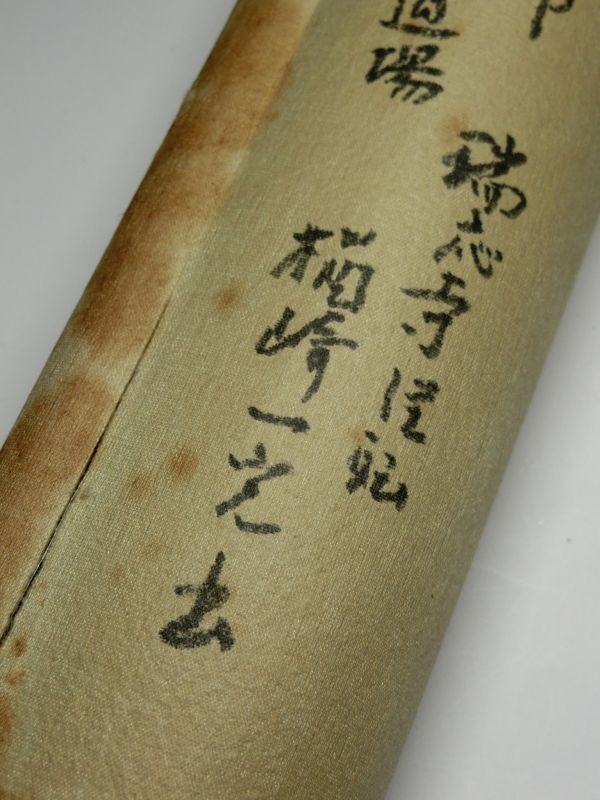 瑞応寺住職
道場 楢崎一光書